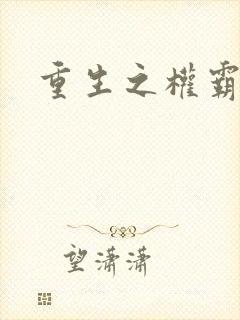 重生之權霸
望潇潇